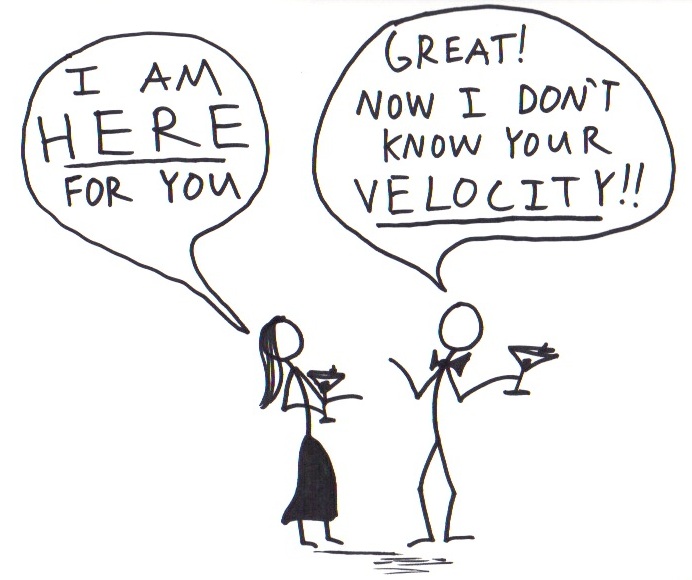 I AM
HERE
FOR YOU
GREAT!
NOW I DON'T
KNOW YOUR
VELOCITY!!